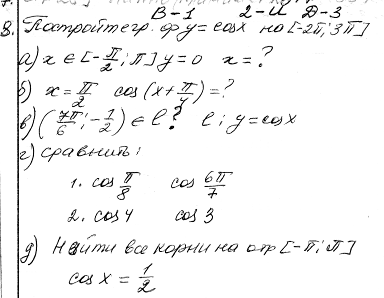 В-1 2-И Д-3
8. Постройте гр. ф у = cosx на [-2π; 3π]
а) x ∈ [-π/2; π] y = 0 x = ?
б) x = π/2 cos(x + π/4) = ?
в) (7π/6; -1/2) ∈ l ? l: y = cosx
г) сравнить:
1. cos π/8 cos 6π/7
2. cos 4 cos 3
д) Найти все корни на отр [-π; π]
cos x = 1/2